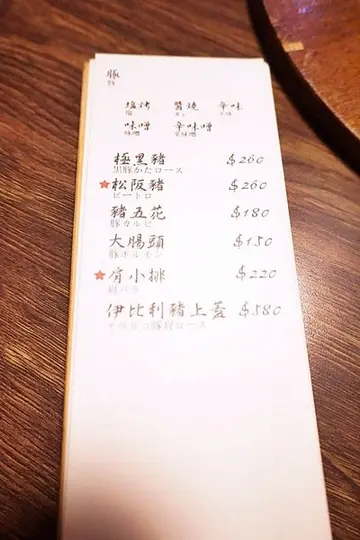 豚
塩烤 醬燒 辛味
塩
味噌 辛味噌
味噌 辛味噌
極黑豬 $260
黒豚かたロース
松阪豬 $260
ピートロ
豬五花 $180
豚カルビ
大腸頭 $150
豚ホルモン
肩小排 $220
肩バラ
伊比利豬上蓋 $580
イベリコ豚肩ロース